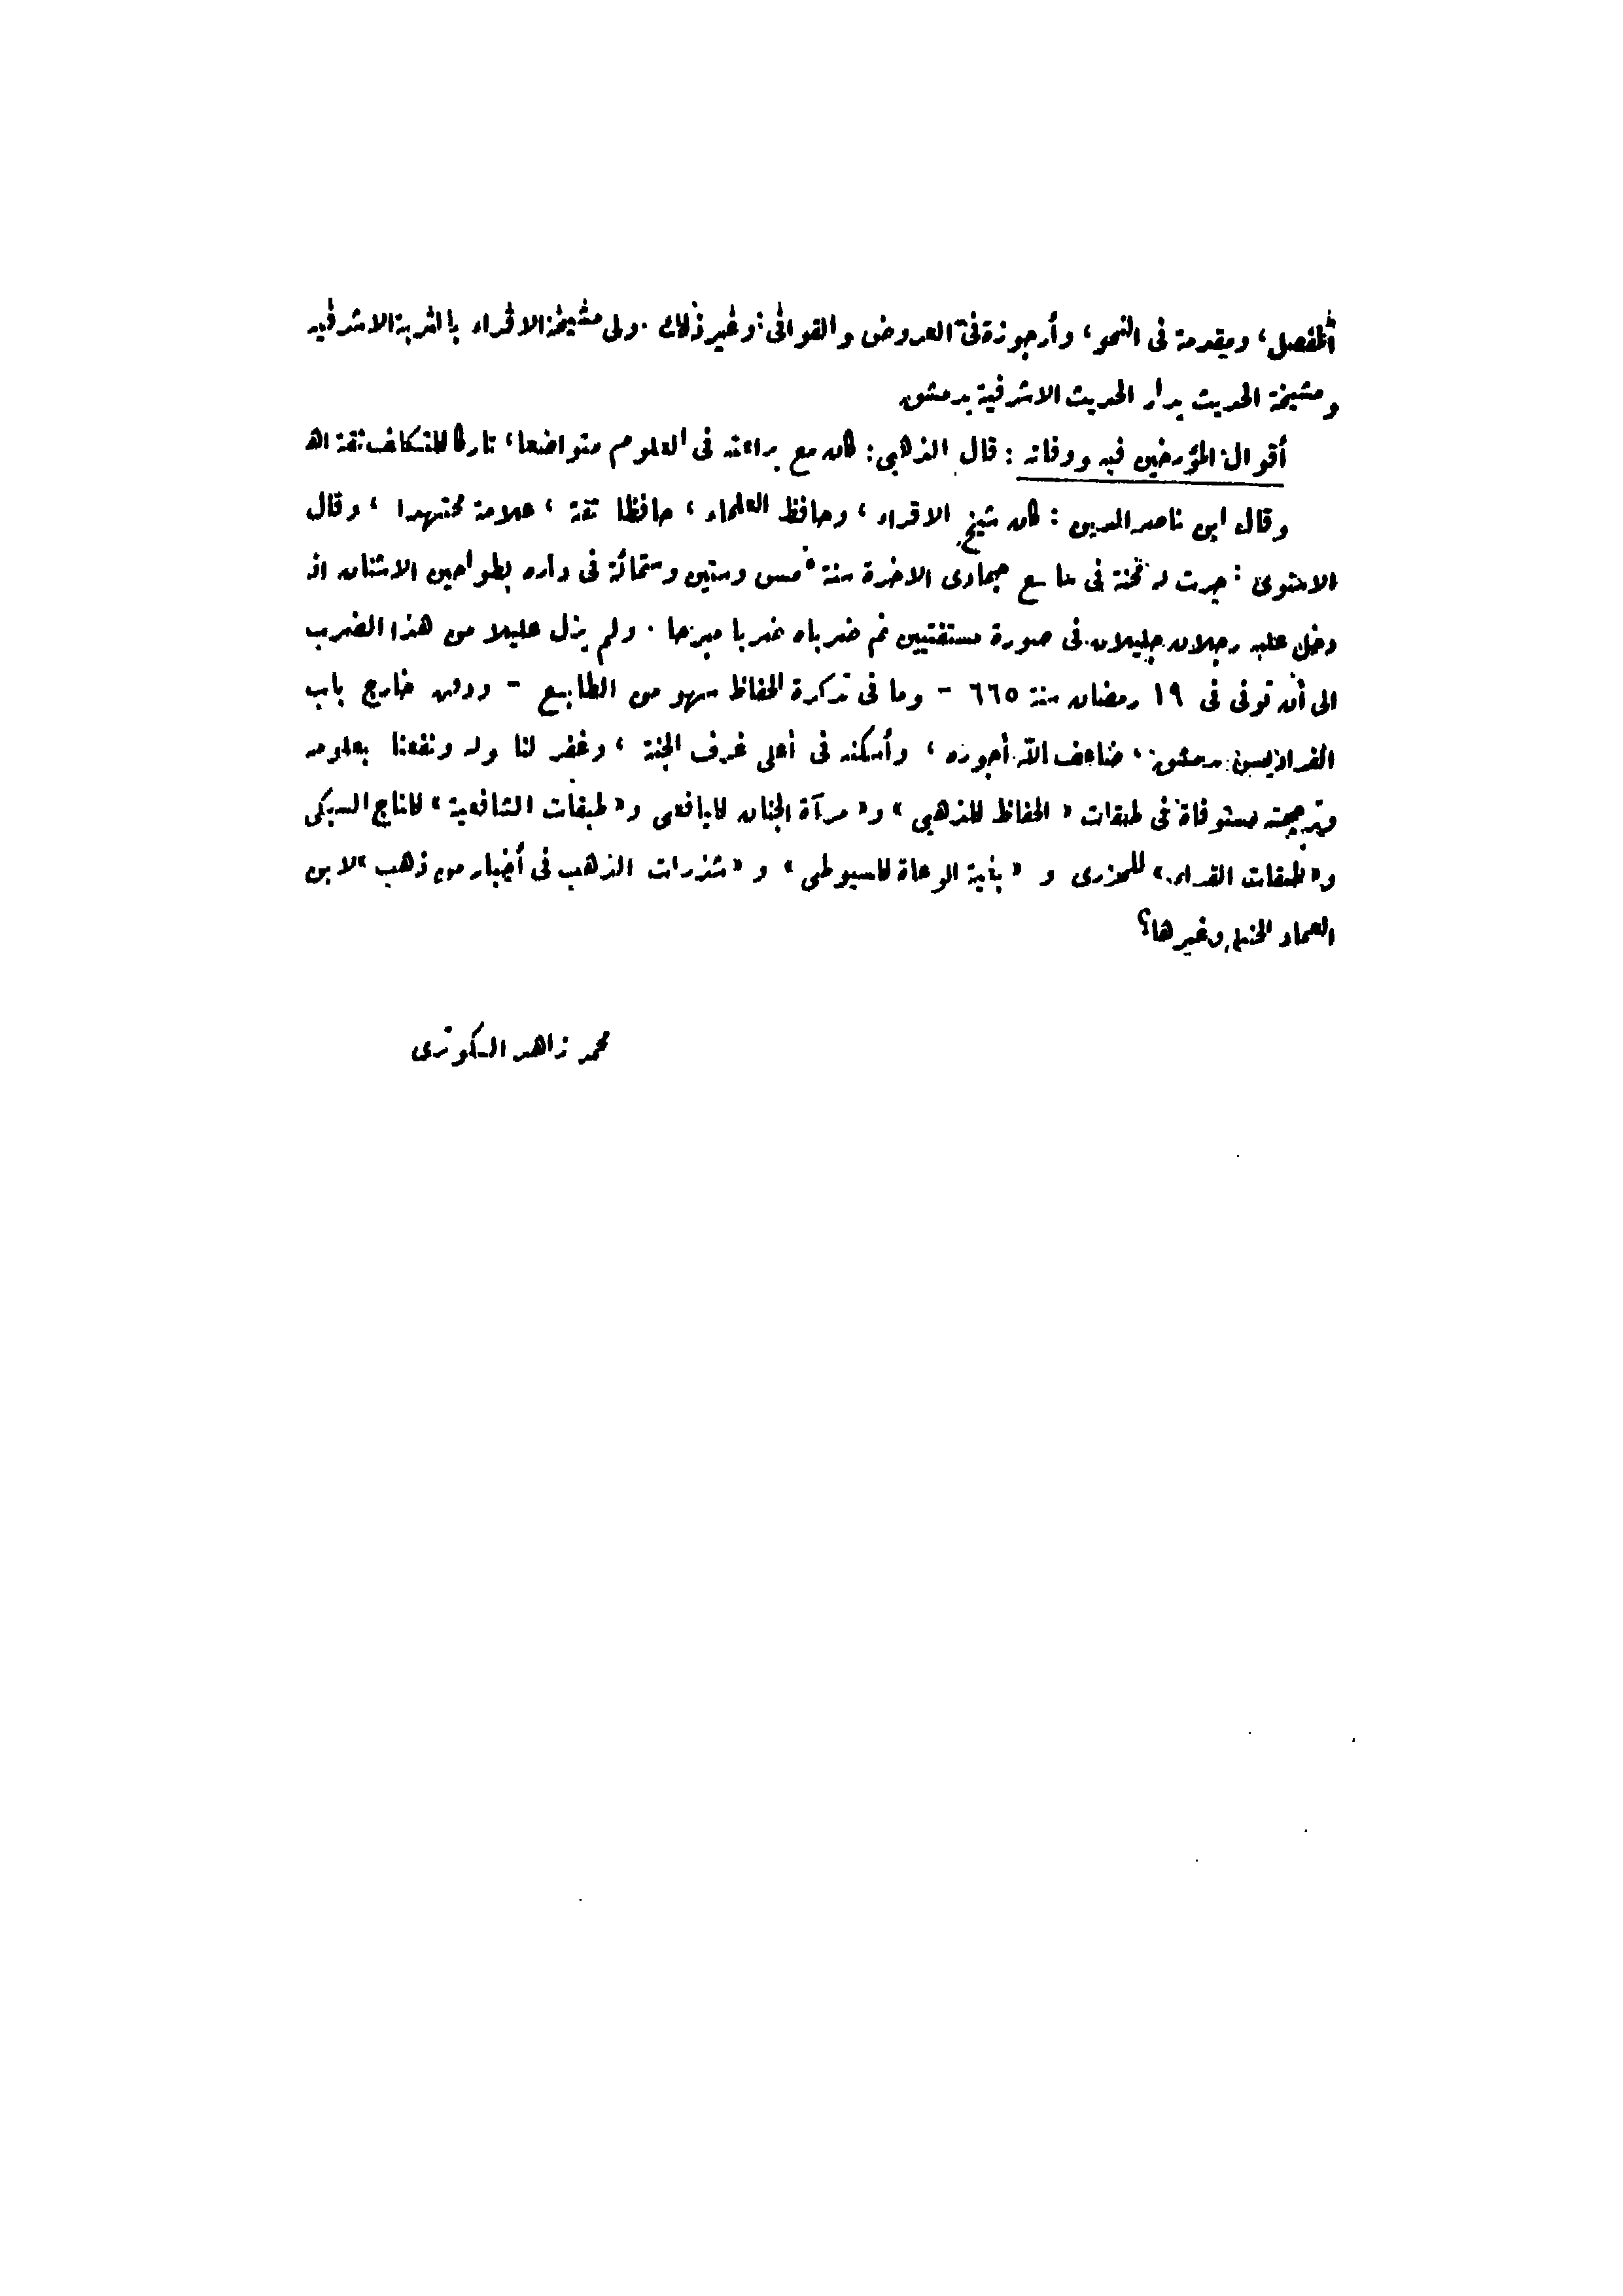 المفصل، ومقدمة فى النحو، وأرجوزة فى العروض والقوافى. وغير ذلك. ولى مشيخة الاقراء بالتربة الاشرفيه
ومشيخة الحديث بدار الحديث الاشرفية بدمشق
أقوال المؤرخين فيه ووفاته : قال الذهبى: كان مع براعته فى العلوم متواضعا، تاركا للتكلف ثقة اه
وقال ابن ناصر الدين : كان شيخ الاقراء، وحافظ العلماء، حافظا ثقة، علامة مجتهدا، وقال
الاسنوى : جرت له محنة فى سابع جمادى الاخرة سنة خمس وستين وستمائة فى داره بطواحين الاشنان اذ
دخل عليه رجلان جليلان فى صورة مستفتيين ثم ضرباه ضربا مبرحا. ولم يزل عليلا من هذا الضرب
الى أن توفى فى ١٩ رمضان سنة ٦٦٥ - وما فى تذكرة الحفاظ سهو من الطابع - ودفن خارج باب
الفراديس بدمشق، ضاعف الله أجوره، وأسكنه فى أعلى غرف الجنة، وغفر لنا وله ونفعنا بعلومه
وترجمته مستوفاة فى طبقات « الحفاظ للذهبى » و« مرآة الجنان لليافعى و« طبقات الشافعية » للتاج السبكى
و« طبقات القراء » للجزرى و « بغية الوعاة للسيوطى » و « شذرات الذهب فى أخبار من ذهب » لابن
العماد الحنبلى وغيرها؟
محمد زاهد الكوثرى